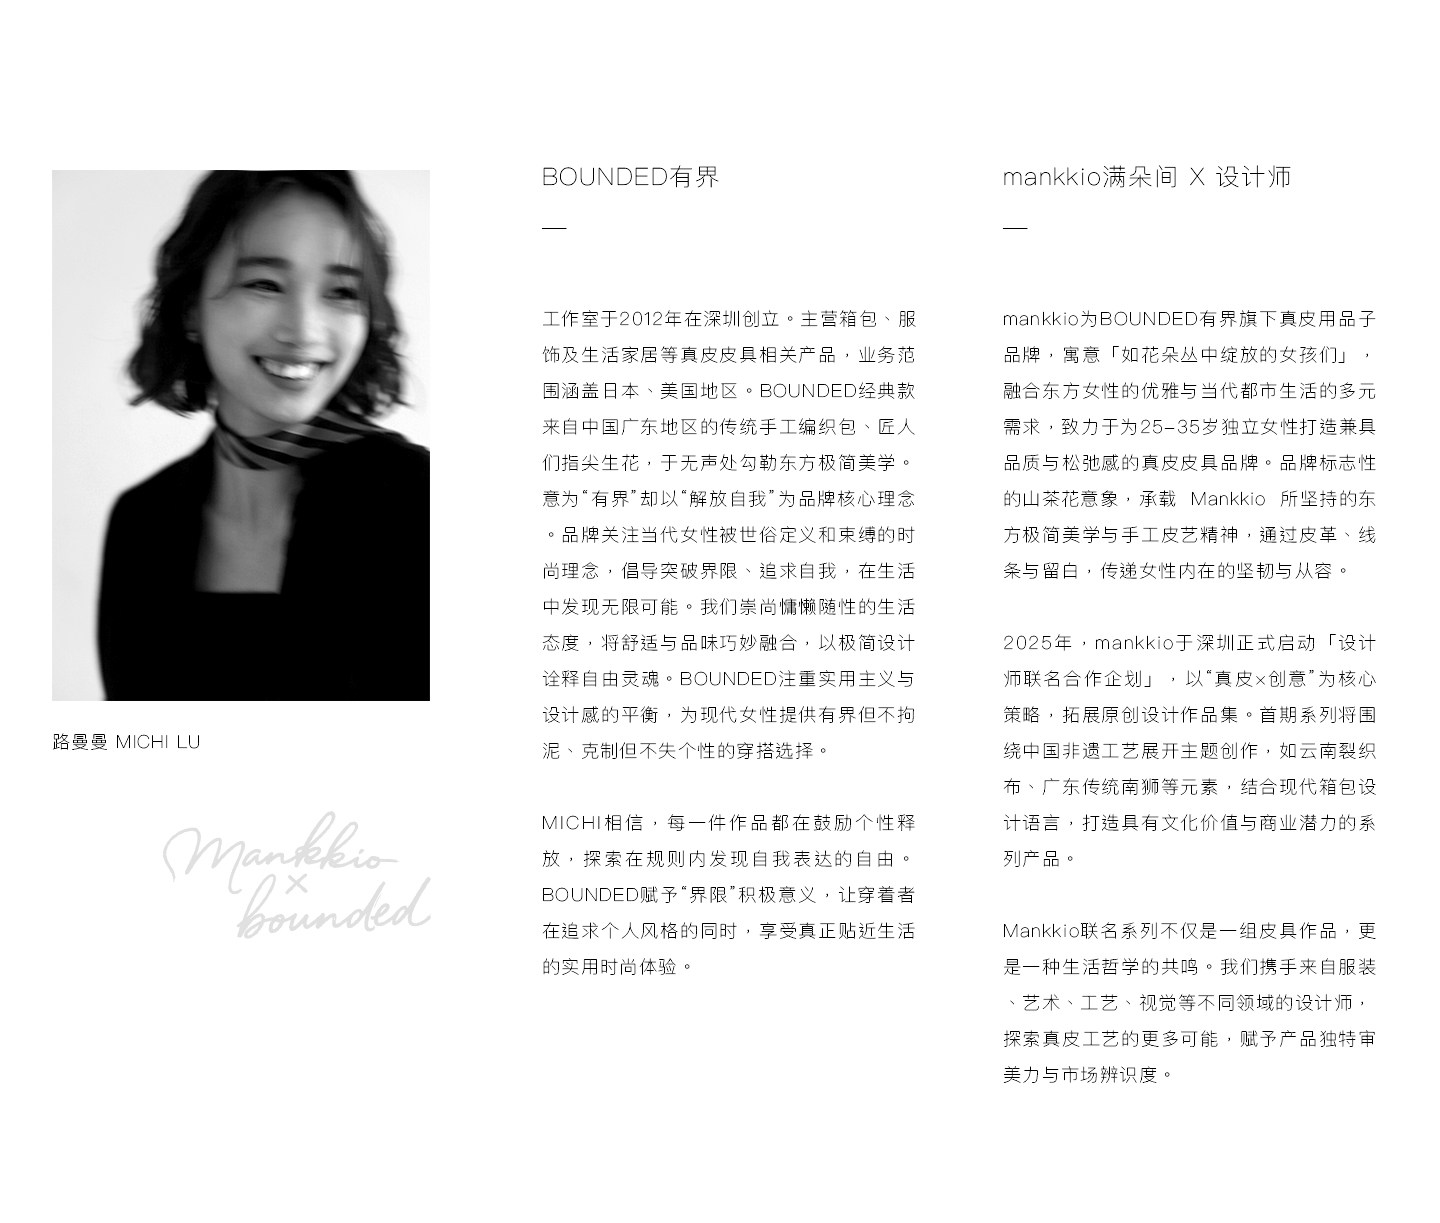 路曼曼 MICHI LU
Mankkio
×
bounded
BOUNDED有界
工作室于2012年在深圳创立。主营箱包、服
饰及生活家居等真皮皮具相关产品，业务范
围涵盖日本、美国地区。BOUNDED经典款
来自中国广东地区的传统手工编织包、匠人
们指尖生花，于无声处勾勒东方极简美学。
意为“有界”却以“解放自我”为品牌核心理念
。品牌关注当代女性被世俗定义和束缚的时
尚理念，倡导突破界限、追求自我，在生活
中发现无限可能。我们崇尚慵懒随性的生活
态度，将舒适与品味巧妙融合，以极简设计
诠释自由灵魂。BOUNDED注重实用主义与
设计感的平衡，为现代女性提供有界但不拘
泥、克制但不失个性的穿搭选择。
MICHI相信，每一件作品都在鼓励个性释
放，探索在规则内发现自我表达的自由。
BOUNDED赋予“界限”积极意义，让穿着者
在追求个人风格的同时，享受真正贴近生活
的实用时尚体验。
mankkio满朵间 X 设计师
mankkio为BOUNDED有界旗下真皮用品子
品牌，寓意「如花朵丛中绽放的女孩们」，
融合东方女性的优雅与当代都市生活的多元
需求，致力于为25–35岁独立女性打造兼具
品质与松弛感的真皮皮具品牌。品牌标志性
的山茶花意象，承载 Mankkio 所坚持的东
方极简美学与手工皮艺精神，通过皮革、线
条与留白，传递女性内在的坚韧与从容。
2025年，mankkio于深圳正式启动「设计
师联名合作企划」，以“真皮×创意”为核心
策略，拓展原创设计作品集。首期系列将围
绕中国非遗工艺展开主题创作，如云南裂织
布、广东传统南狮等元素，结合现代箱包设
计语言，打造具有文化价值与商业潜力的系
列产品。
Mankkio联名系列不仅是一组皮具作品，更
是一种生活哲学的共鸣。我们携手来自服装
、艺术、工艺、视觉等不同领域的设计师，
探索真皮工艺的更多可能，赋予产品独特审
美力与市场辨识度。